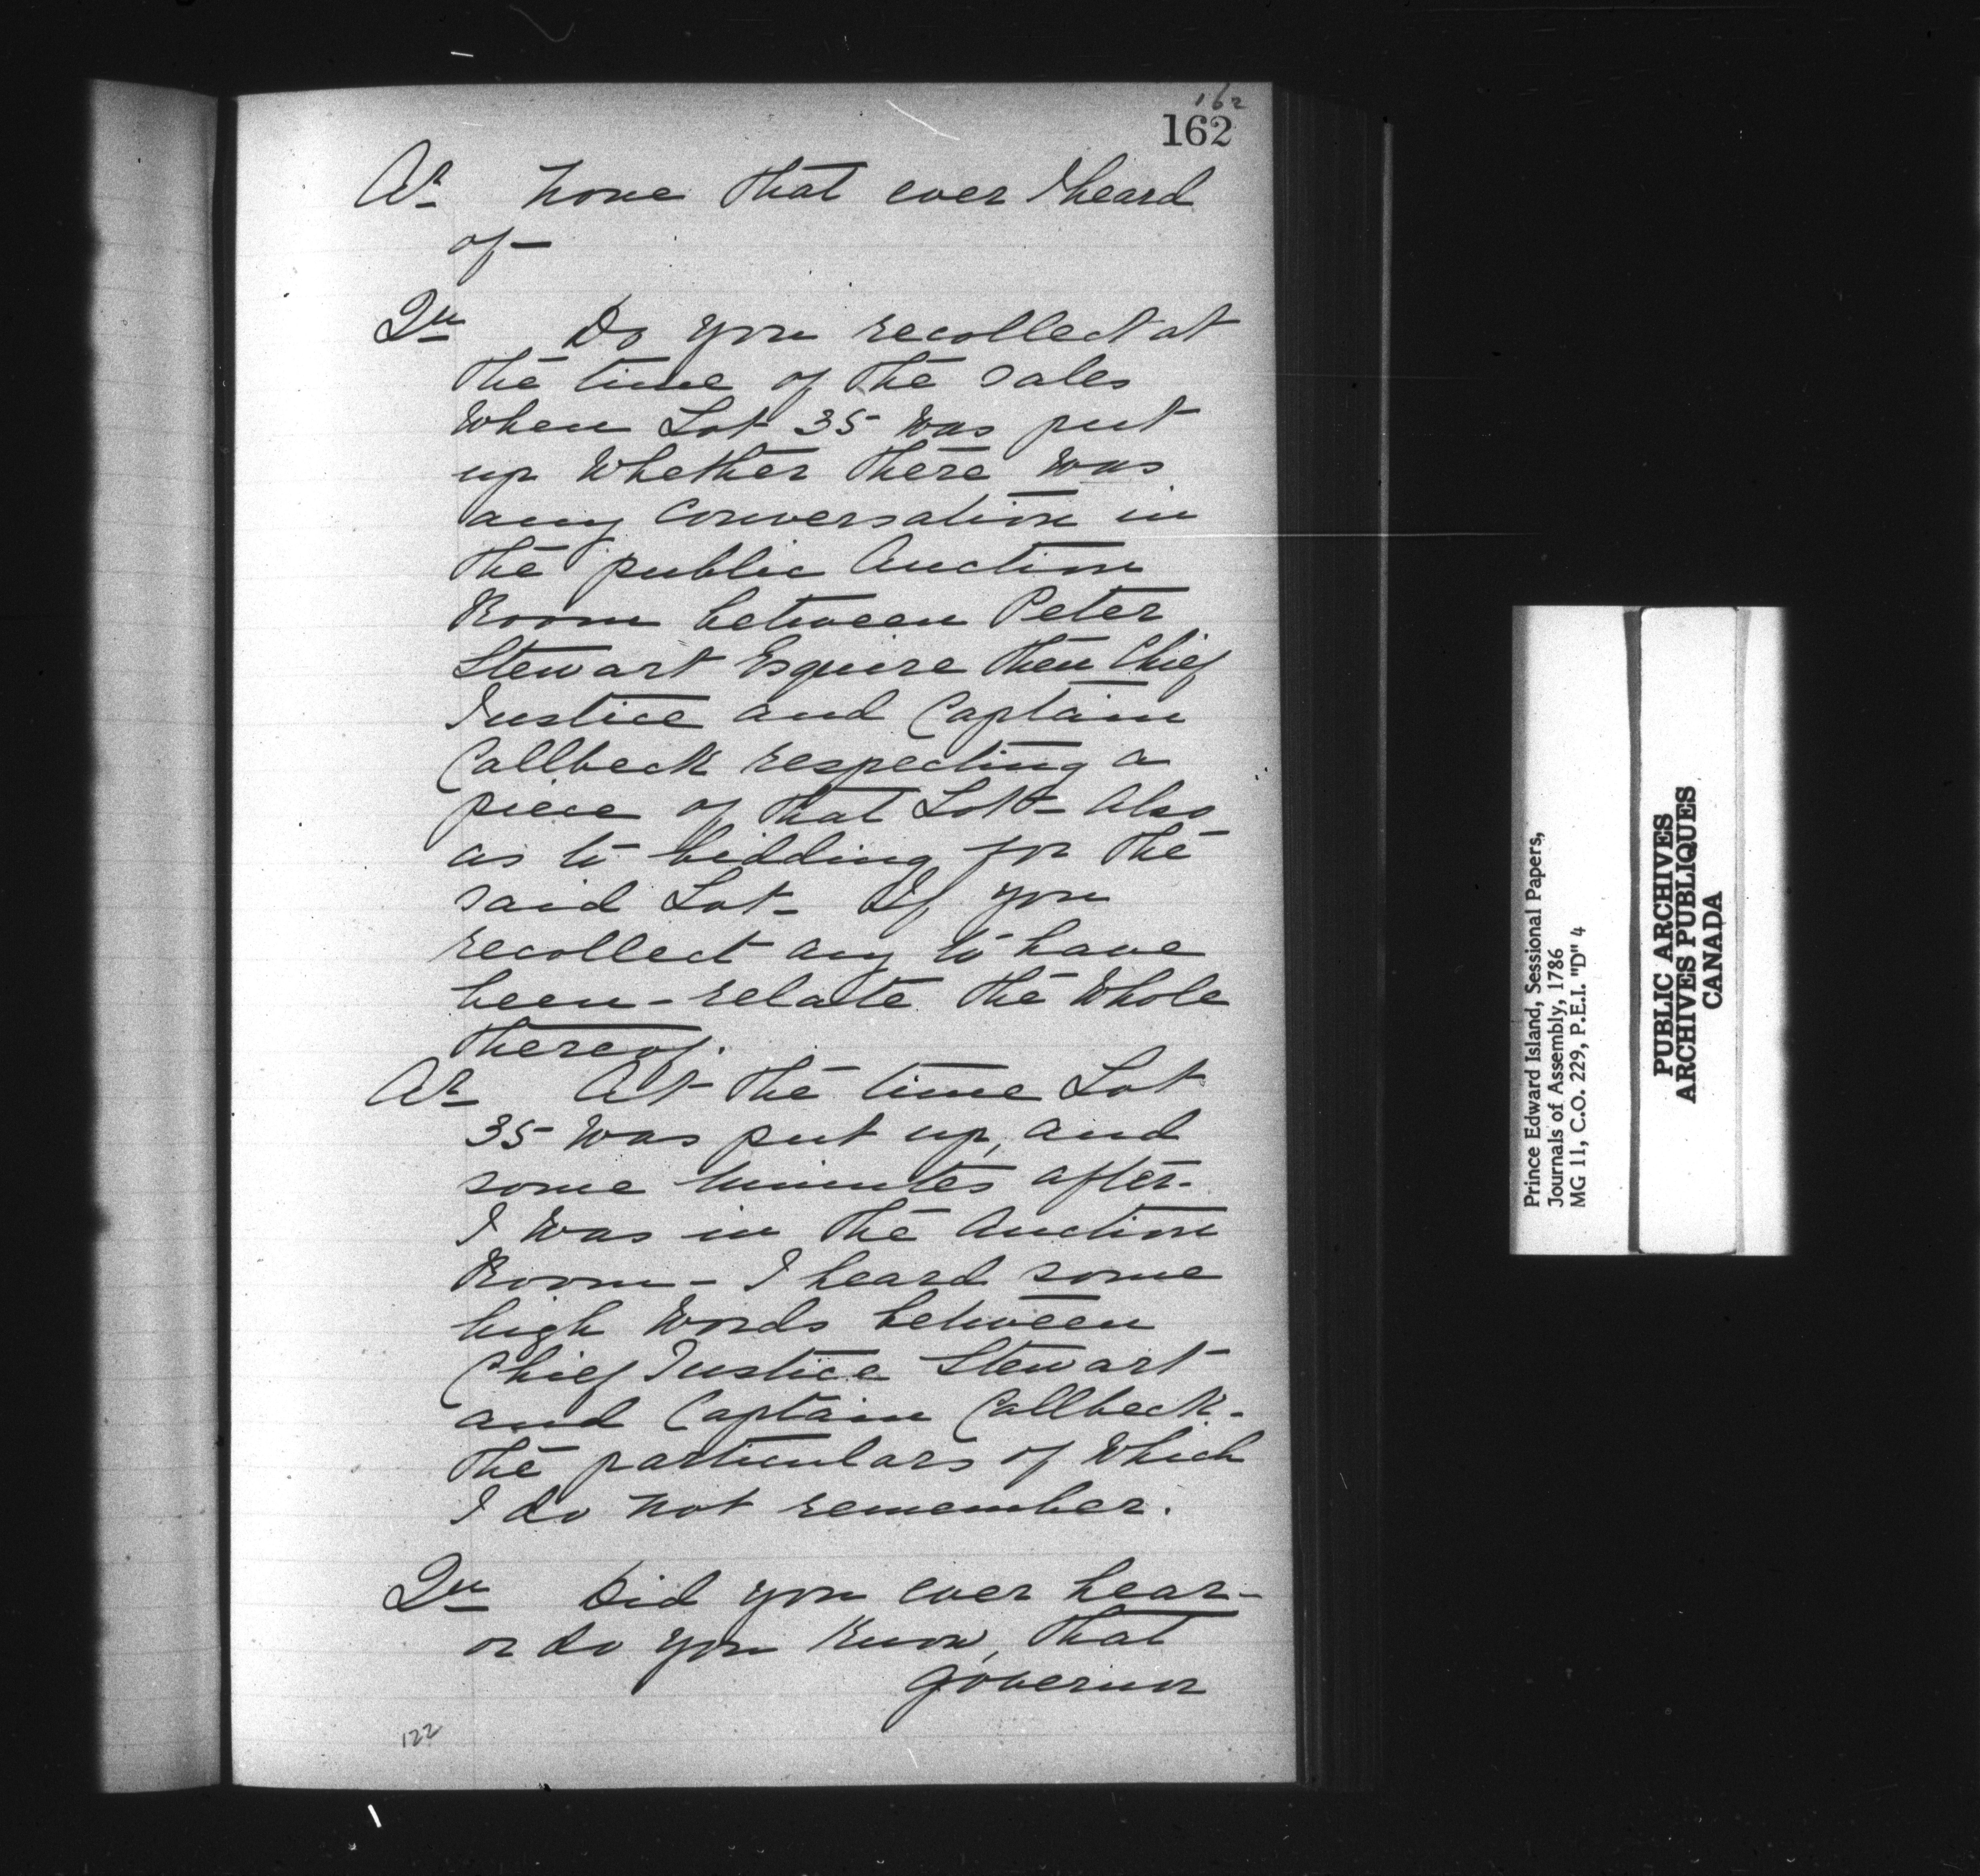 162
162
Ar None that ever I heard
of—
Qu Do you recollect at
the time of the sales
when Lot 35 was put
up whether there was
any conversation in
the public Auction
Room between Peter
Stewart Esquire then Chief
Justice and Captain
Callbeck respecting a
piece of that Lot- Also
as to bidding for the
said Lot- If you
recollect any to have
been - relate the whole
thereof.
Ar At the time Lot
35 was put up, and
some minutes after.
I was in the Auction
Room - I heard some
high words between
Chief Justice Stewart
and Captain Callbeck -
the particulars of which
I do not remember.
Qu Did you ever hear -
or do you know, that
Governor
122
Prince Edward Island, Sessional Papers,
Journals of Assembly, 1786
MG 11, C.O. 229, P.E.I. "D" 4
PUBLIC ARCHIVES
ARCHIVES PUBLIQUES
CANADA